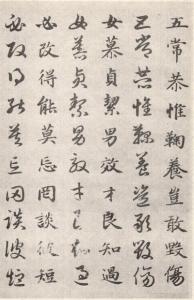 五常恭惟鞠養豈敢毀傷
五常恭惟鞠養豈敢毀傷
女慕貞絜男效才良知過
女慕貞絜男效才良知過
必改得能莫忘罔談彼短
必改得能莫忘罔談彼短